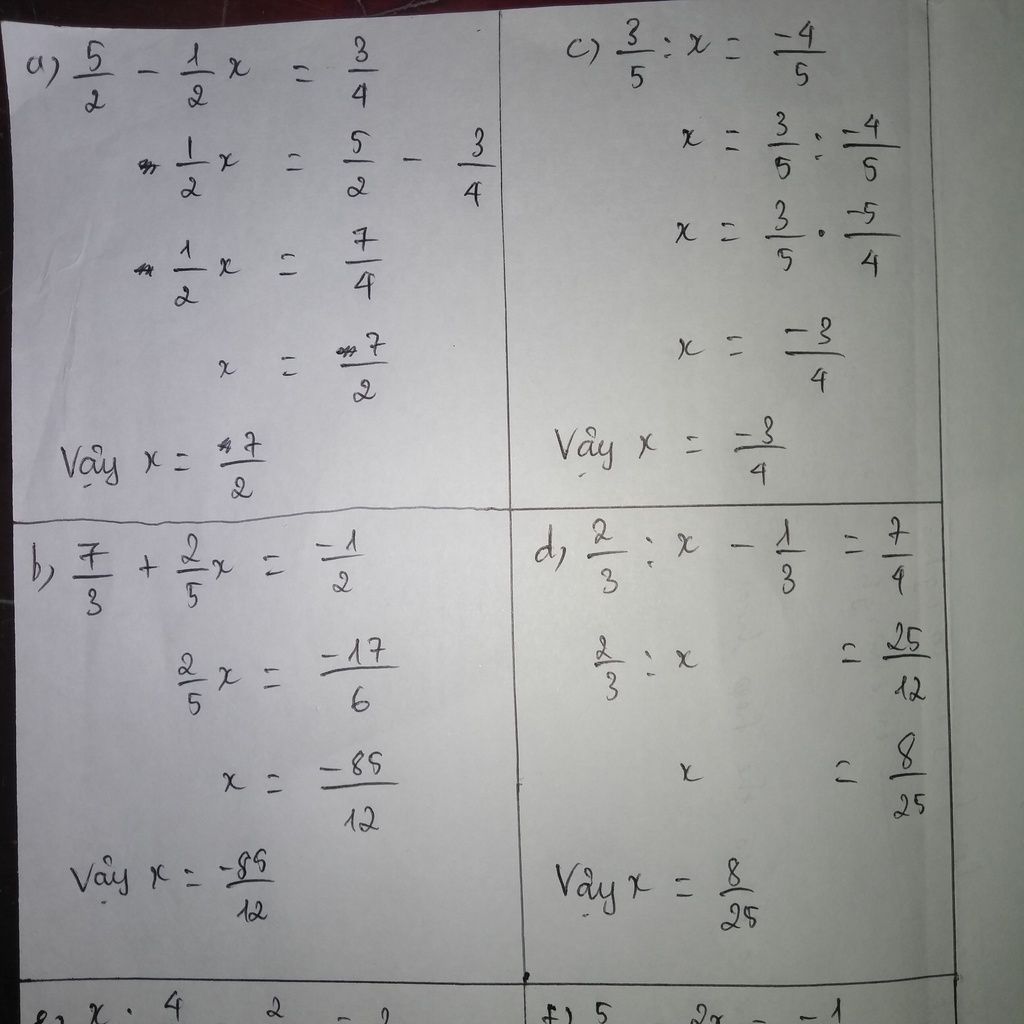 a) 5/2 - 1/2 x = 3/4
1/2 x = 5/2 - 3/4
1/2 x = 7/4
x = 7/2
Vậy x = 7/2
c) 3/5 : x = -4/5
x = 3/5 : -4/5
x = 3/5 . -5/4
x = -3/4
Vậy x = -3/4
b) 7/3 + 2/5 x = -1/2
2/5 x = -17/6
x = -85/12
Vậy x = -85/12
d) 2/3 : x - 1/3 = 7/4
2/3 : x = 25/12
x = 8/25
Vậy x = 8/25